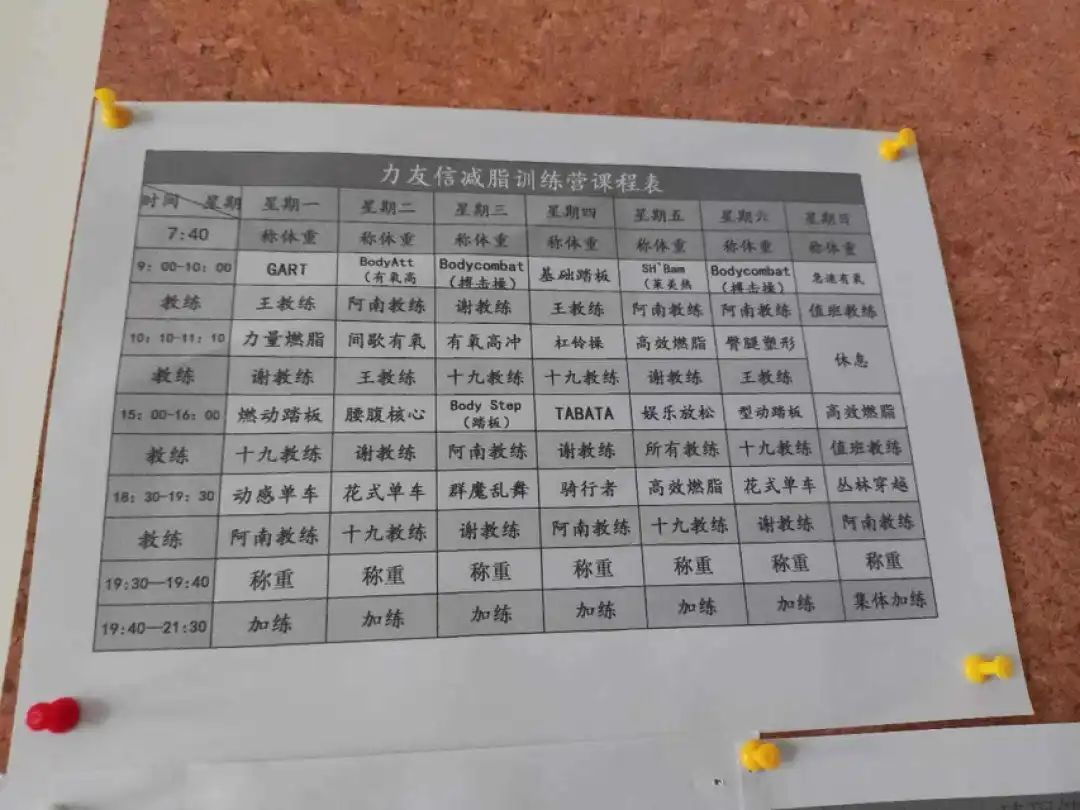 力友信减脂训练营课程表
时间 星期 星期一 星期二 星期三 星期四 星期五 星期六 星期日
7:40 称体重 称体重 称体重 称体重 称体重 称体重 称体重
9:00-10:00 GART BodyAtt(有氧高 Bodycombat(搏击操) 基础踏板 SH`Bam(莱美热 Bodycombat(搏击操) 急速有氧
教练 王教练 阿南教练 谢教练 王教练 阿南教练 阿南教练 值班教练
10:10-11:10 力量燃脂 间歇有氧 有氧高冲 杠铃操 高效燃脂 臀腿塑形 休息
教练 谢教练 王教练 十九教练 十九教练 谢教练 王教练
15:00-16:00 燃动踏板 腰腹核心 Body Step(踏板) TABATA 娱乐放松 型动踏板 高效燃脂
教练 十九教练 谢教练 阿南教练 谢教练 所有教练 十九教练 值班教练
18:30-19:30 动感单车 花式单车 群魔乱舞 骑行者 高效燃脂 花式单车 丛林穿越
教练 阿南教练 十九教练 谢教练 阿南教练 十九教练 谢教练 阿南教练
19:30—19:40 称重 称重 称重 称重 称重 称重 称重
19:40—21:30 加练 加练 加练 加练 加练 加练 集体加练